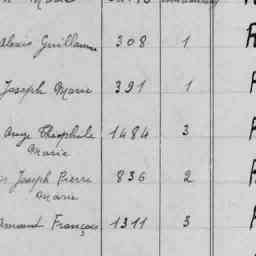 Alexis Guillaume 308 1
Joseph Marie 391 1
Ange Théophile 1484 3
Marie
Joseph Pierre 836 2
Marie
Armand François 1311 3